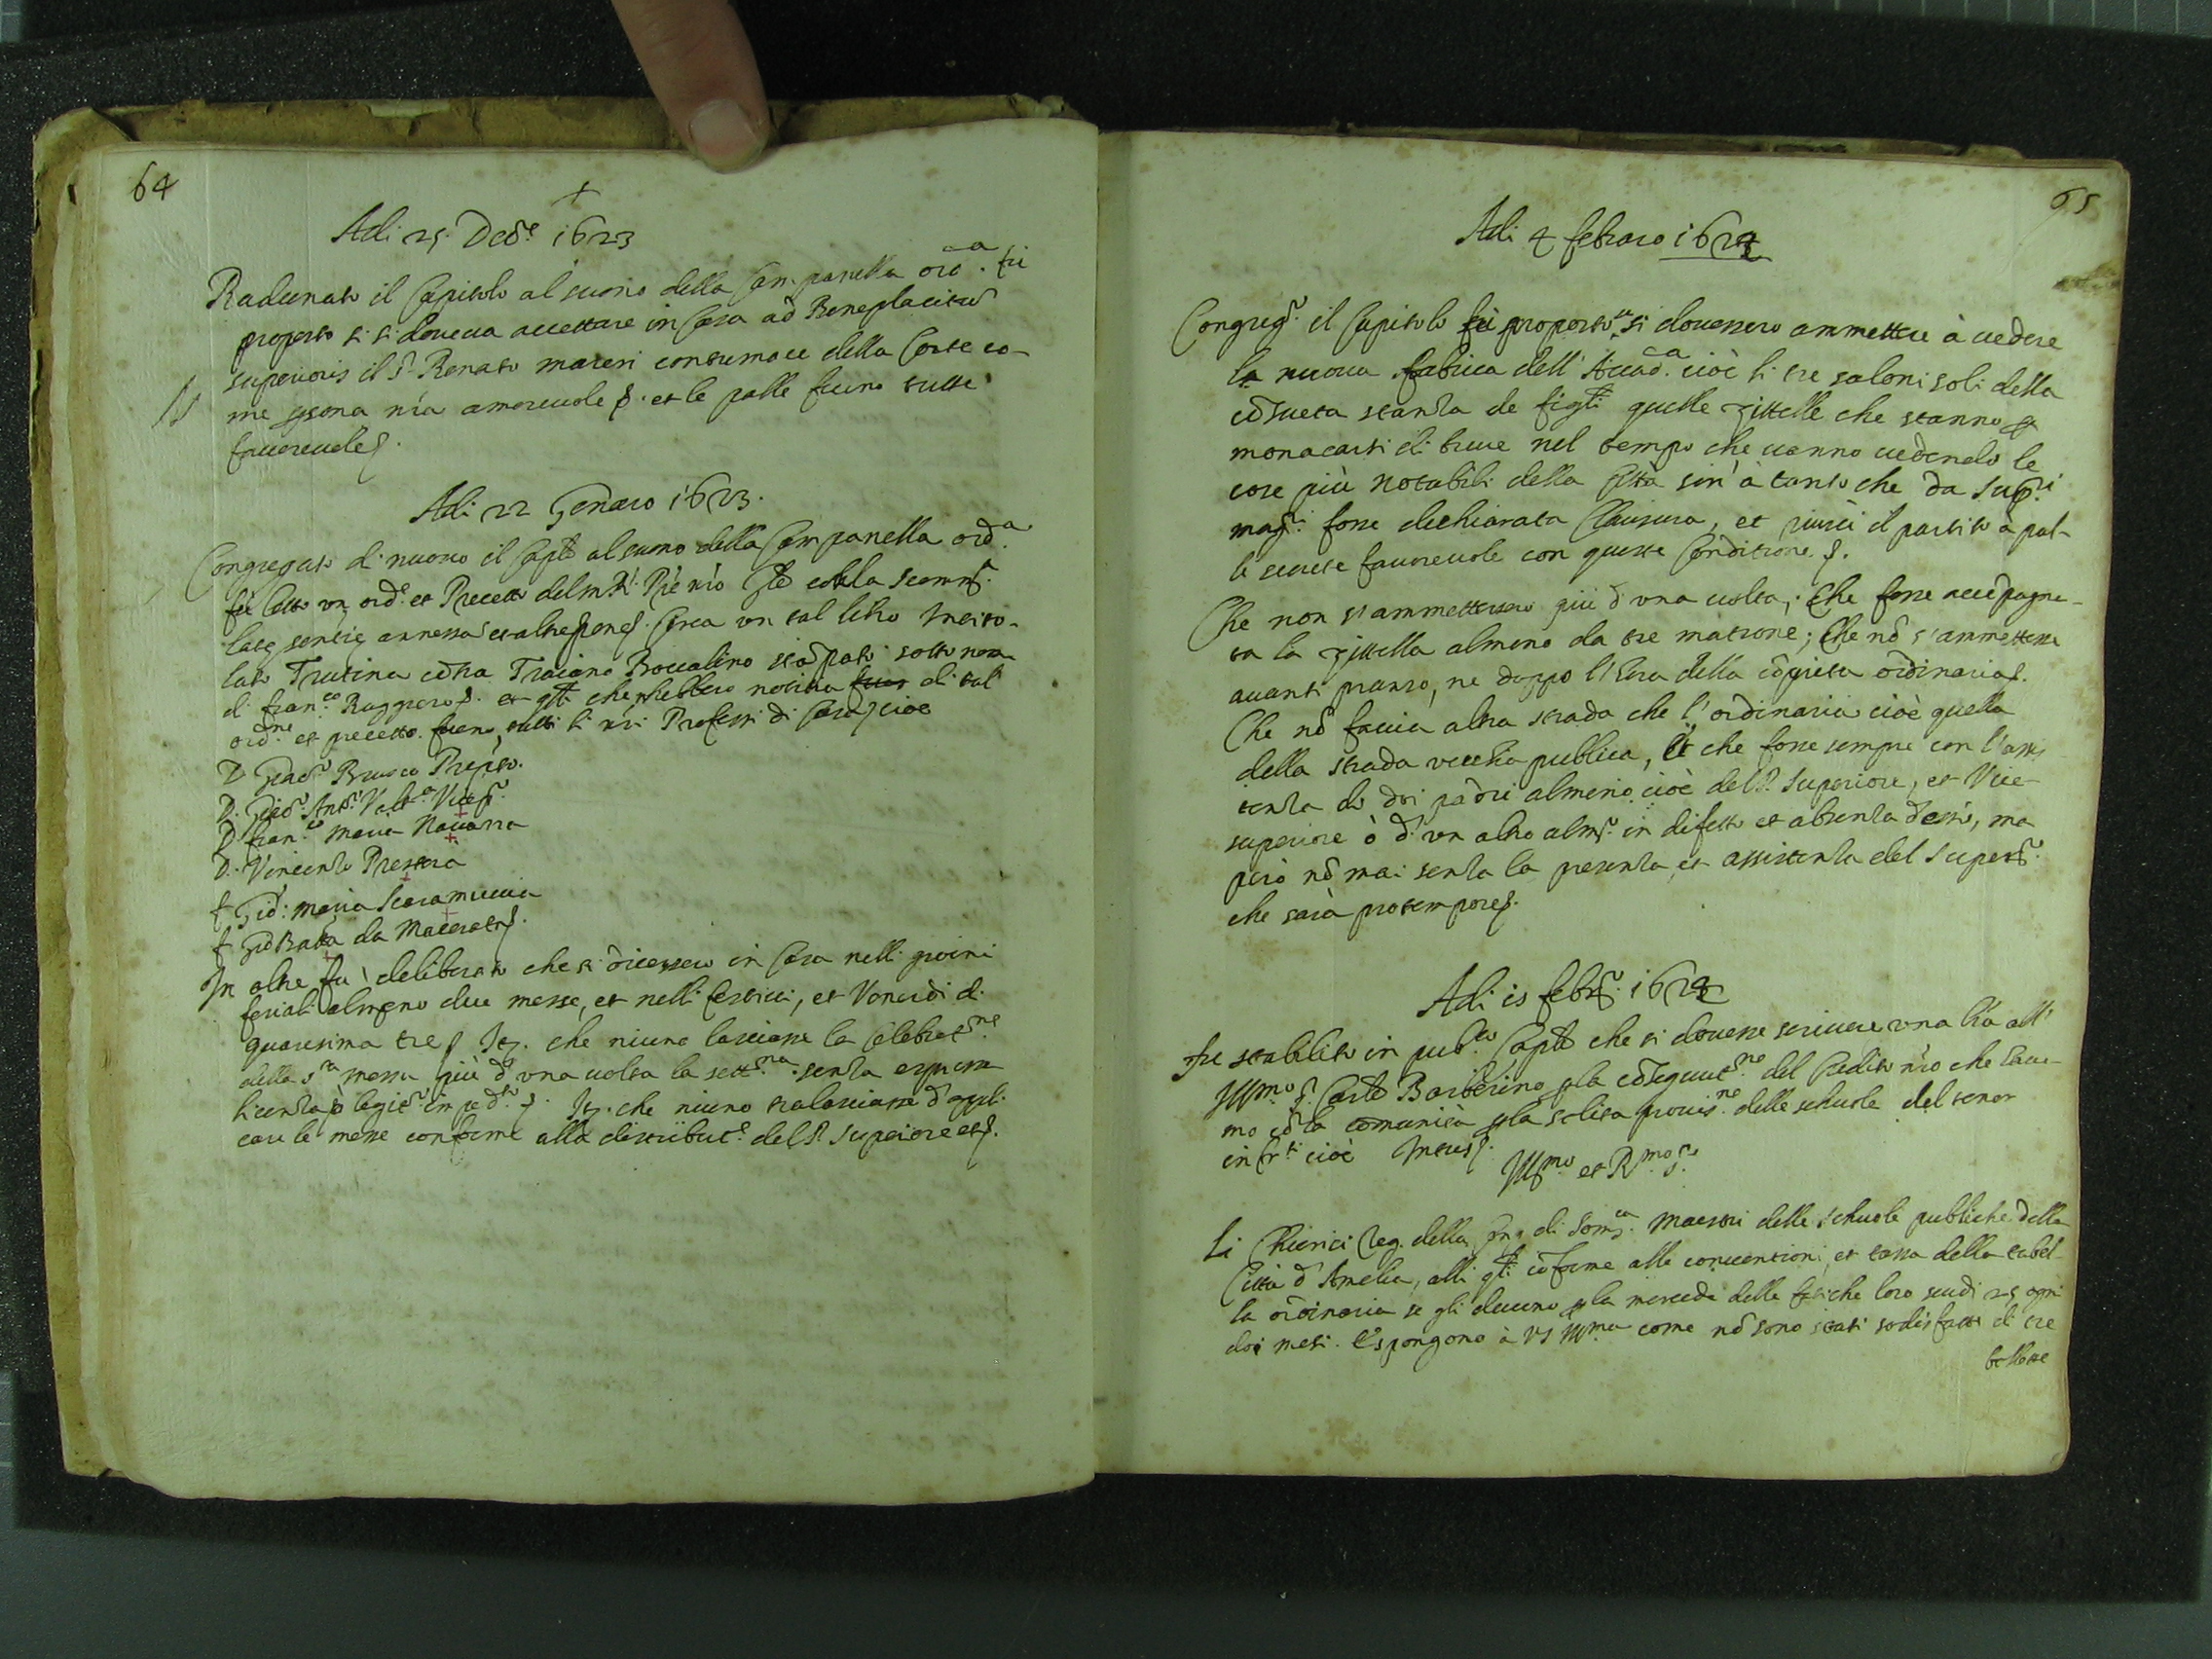 64
+
Adi 25. Decẽ. 1623
Radunato il Capitolo al suono della Campanella ordᵃ. fù
proposto si si doueua accettare in Casa ad Beneplacitũ
superioris il S.ʳ Renato mareri contumace della Corte co-
me p̱sona nr̃a amoreuole p. et le palle furno tutte
fauoreuoleʃ.
Adi 22 Genaro 1623.
Congregato di nuouo il Caplõ al suono della Campanella ord.ᵃ
fù letto un ord.ᵉ et Precetto del m. R. Pr̃e nr̃o Gñle colla scomm.
late sentiẽ annessa et altre pene. Circa un tal libro Intito-
lato Trutina cõtra Traiano Boccalino stãpato sotto nome
di Fran.ᶜᵒ Ruggero. et gli che hebbero notitia di tal
ord.ⁿᵉ et precetto furno tutti li nr̃i Professi di Casa, cioè
D. Giac.º Brusco Prep̃to.
D. Gio: Ant.º Valt.ᵃ Vicep.
D. Fran.ᶜᵒ maria Nauarra
D. Vincenzo Pressera
f. Gio: maria Scaramuccia
f. Gio Batta da Macerata.
In oltre fu' deliberato che si dicessero in Casa nelli giorni
feriali almeno due messe, et nelli festiui, et Venerdi di
quaresima tre. It. che niuno lasciasse la Celebrat.ⁿᵉ
della s.ᵗᵃ messa più d'una uolta la sett.ⁿᵃ senza espressa
licenza ò legit.º imped.º. It. che niuno tralasciasse d'appli-
care le messe conforme alla distribut.ᵉ del P. Superiore etc.
65
Adi 4 febraro 1624
Congreg.º il Capitolo fù proposto se si douessero ammettere à uedere
la nuoua fabrica dell' Accad.ᶜᵃ cioè li tre saloni soli della
cõsueta stanza de figli quelle zittelle che stanno p
monacarsi di breue nel tempo che uanno uedendo le
cose più notabili della Città sin' à tanto che da Sup.ʳⁱ
magg.ʳⁱ fosse dichiarata Clausura, et riuscì il partito à pal-
le secrete fauoreuole con queste Conditione.
Che non s'ammettessero più d'una uolta; Che fosse accõpagna-
ta la zittella almeno da tre matrone; Che nõ s'ammettesse
auanti pranzo, ne doppo l'hora della cõpieta ordinaria.
Che nõ faccia altra strada che l'ordinaria cioè quella
della strada vecchia publica, Et che fosse sempre con l'assi
stenza di doi padri almeno cioè del P. Superiore, et Vice-
superiore ò d'un altro alm.º in difetto et absenza d'essi, ma
però nõ mai senza la presenza, et assistenza del Super.ʳᵉ
che sarà pro tempore.
Adi 15 feb.º 1624
Fu stabilito in pub.ᶜᵒ Caplõ che si douesse scriuere una lr̃a all'
Ill.ᵐᵒ S. Card. Barberino p la cõsecut.ⁿᵉ del Credito nr̃o che haue-
mo cõ la comunità p la solita prouis.ⁿᵉ delle schuole del tenor
infr.ᵗⁱ cioè Intus.
Ill.ᵐᵒ et R.ᵐᵒ S.ʳᵉ
Li Chierici Reg. della Cong. di Som.ᶜᵃ Maestri delle schuole publiche della
Città d'Amelia, alli q̃li cõforme alle conuentioni, et tassa della tabel-
la ordinaria se gli deueno p la mercede delle fatiche loro scudi 25 ogni
doi mesi. Espongono à VS Ill.ᵐᵃ come nõ sono stati sodisfatti di tre
bollette